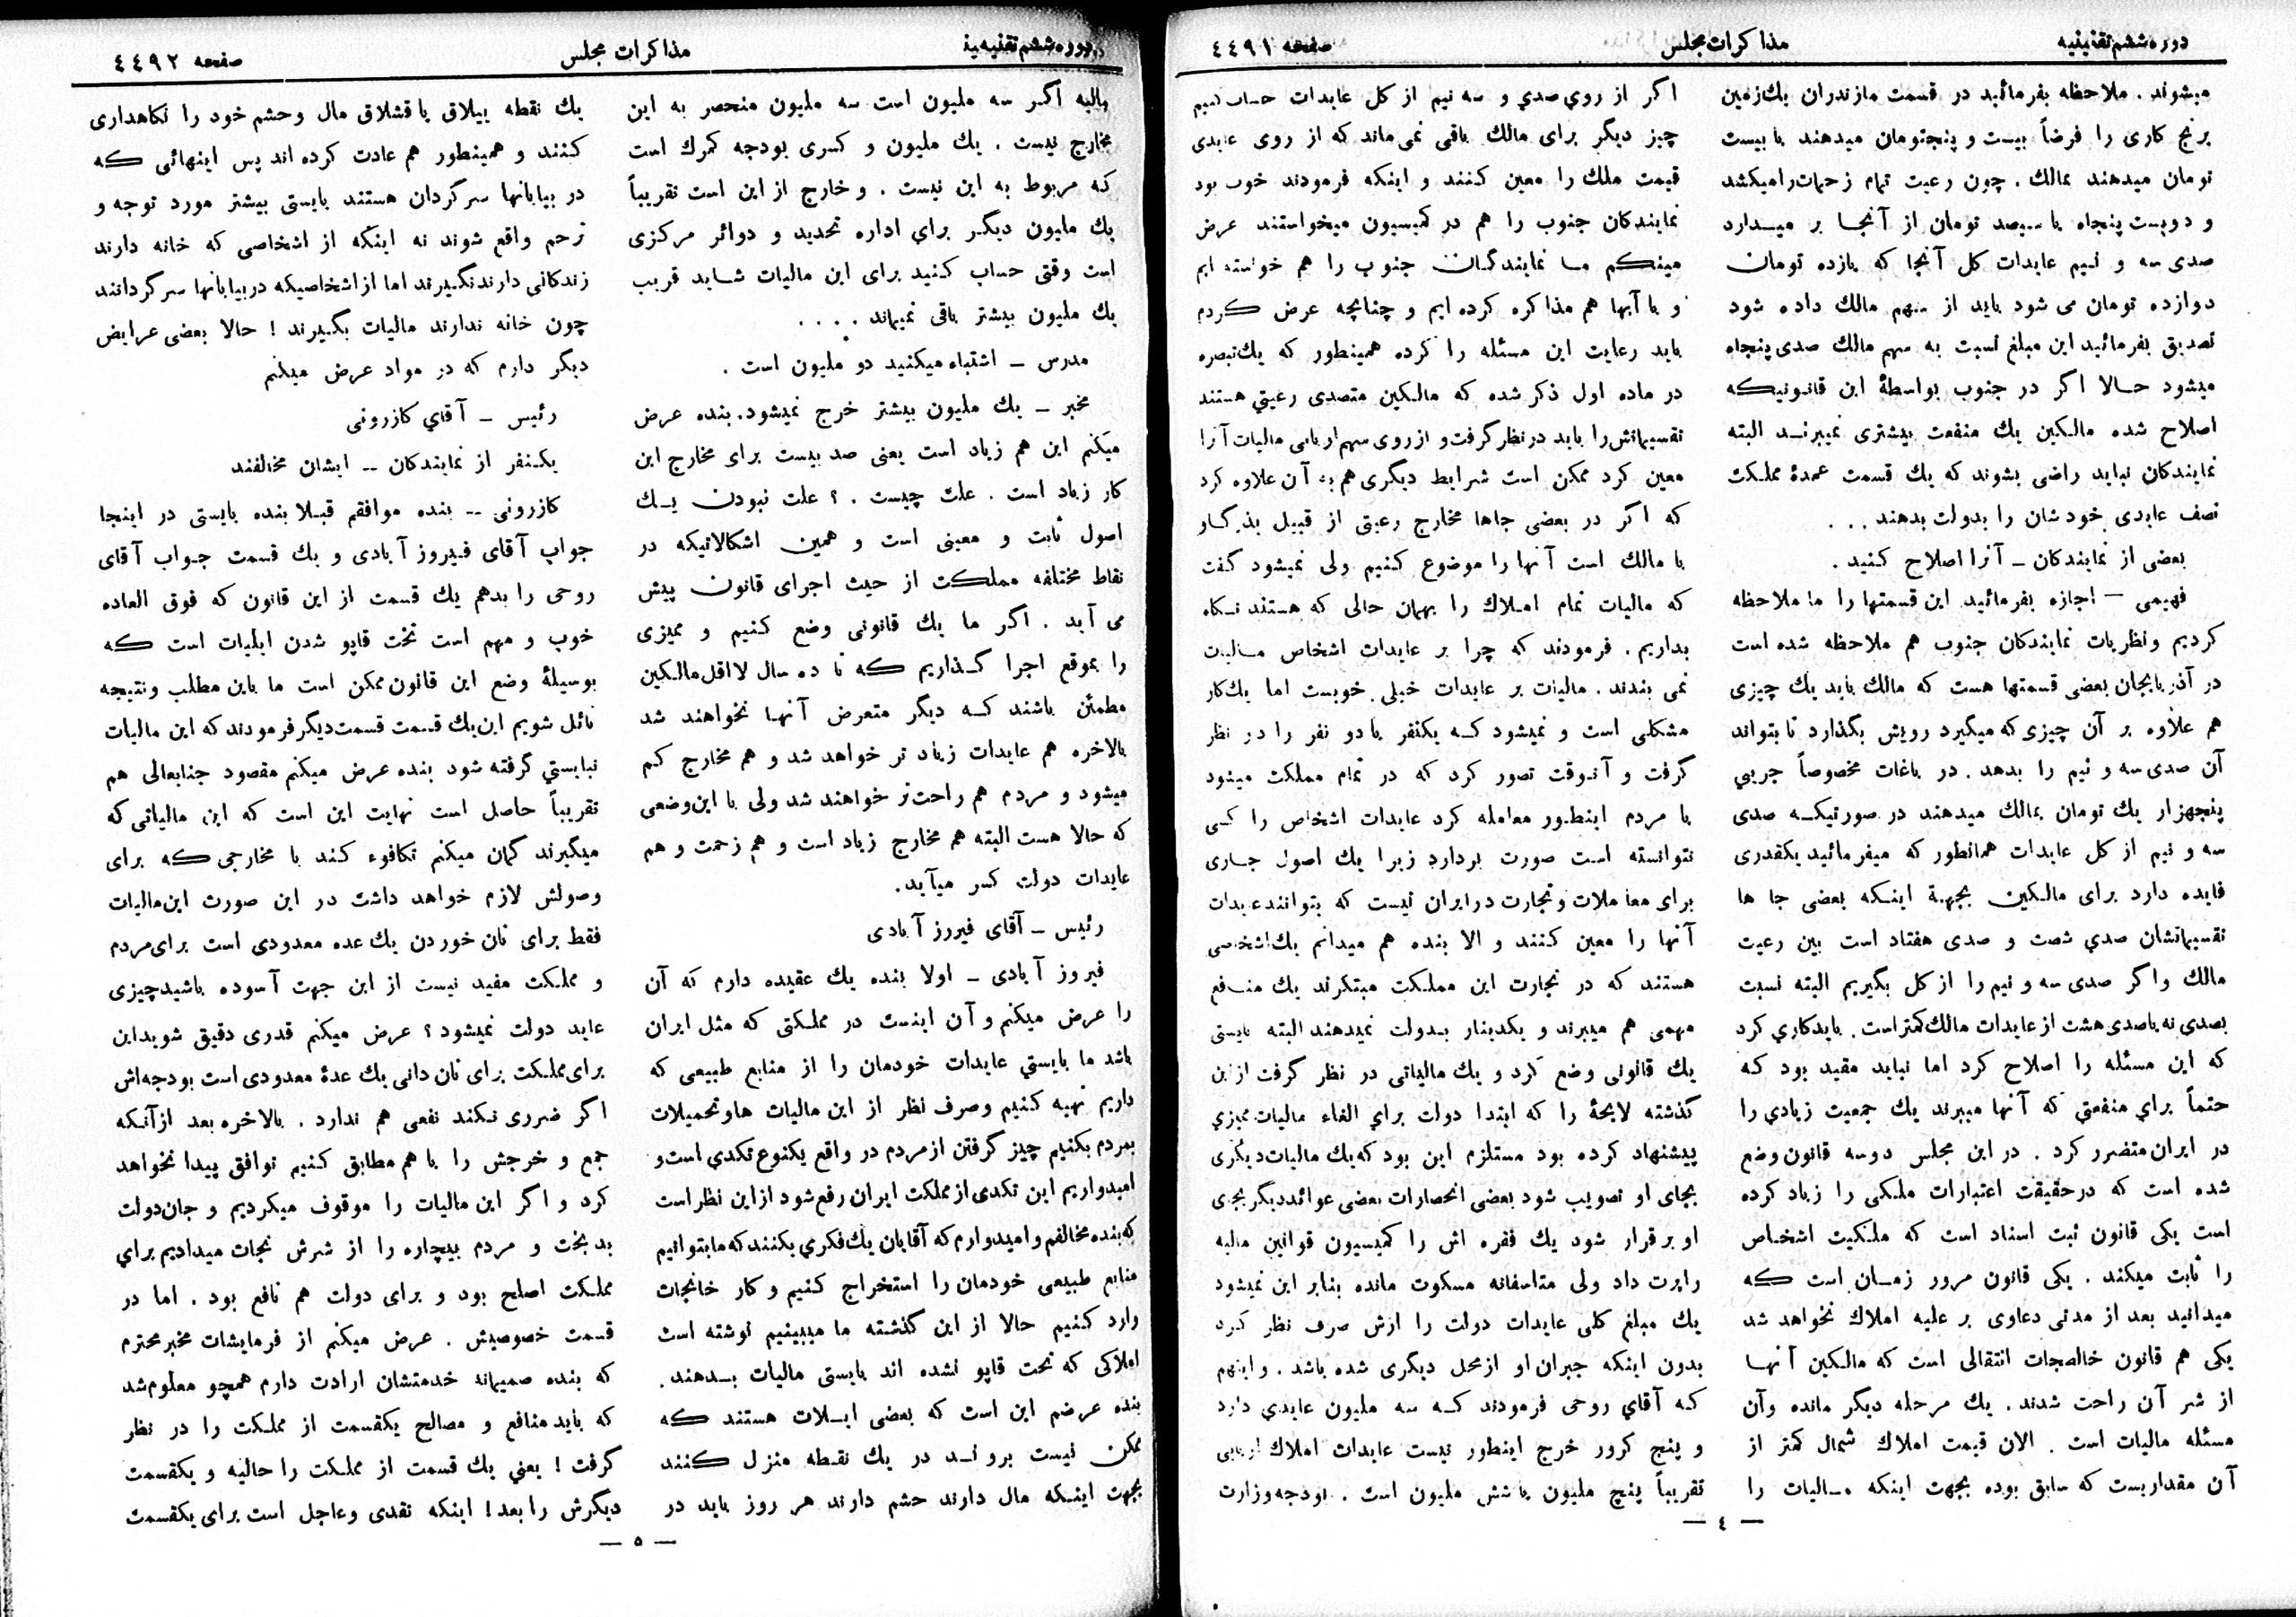 دوره ششم تقنینیه
مذاکرات مجلس
صفحه ٤٤٩١
میشوند . ملاحظه بفرمائید در قسمت مازندران یك زمین
برنج کاری را فرضاً بیست و پنجتومان میدهند یا بیست
تومان میدهند بمالك . چون رعیت تمام زحمات را میکشد
و دویست پنجاه یا سیصد تومان از آنجا بر میدارد
صدی سه و نیم عایدات کل آنجا که یازده تومان
دوازده تومان می شود باید از سهم مالك داده شود
تصدیق بفرمائید این مبلغ نسبت به سهم مالك صدی پنجاه
میشود حالا اگر در جنوب بواسطهٔ این قانونیکه
اصلاح شده مالکین یك منفعت بیشتری نمیبرند البته
نمایندگان نباید راضی بشوند که یك قسمت عمدهٔ مملکت
نصف عایدی خودشان را بدولت بدهند . . .
بعضی از نمایندگان ـ آنرا اصلاح کنید .
فهیمی ـ اجازه بفرمائید این قسمتها را ما ملاحظه
کردیم و نظریات نمایندگان جنوب هم ملاحظه شده است
در آذربایجان بعضی قسمتها هست که مالك باید یك چیزی
هم علاوه بر آن چیزی که میگیرد رویش بگذارد تا بتواند
آن صدی سه و نیم را بدهد . در باغات مخصوصاً جریبی
پنجهزار یك تومان بمالك میدهند در صورتیکه صدی
سه و نیم از کل عایدات همانطور که میفرمائید یکقدری
فایده دارد برای مالکین بجهة اینکه بعضی جا ها
تقسیماتشان صدي شصت و صدی هفتاد است بین رعیت
مالك و اگر صدی سه و نیم را از کل بگیریم البته نسبت
بصدی نه یا صدی هشت از عایدات مالك کمتر است . باید کاری کرد
که این مسئله را اصلاح کرد اما نباید مقید بود که
حتماً براي منفعتی که آنها میبرند یك جمعیت زیادي را
در ایران متضرر کرد . در این مجلس دو سه قانون وضع
شده است که در حقیقت اعتبارات ملکی را زیاد کرده
است یکی قانون ثبت اسناد است که ملکیت اشخاص
را ثابت میکند . یکی قانون مرور زمان است که
میدانید بعد از مدتی دعاوی بر علیه املاك نخواهد شد
یکی هم قانون خالصجات انتقالی است که مالکین آنها
از شر آن راحت شدند . یك مرحله دیگر مانده و آن
مسئله مالیات است . الان قیمت املاك شمال کمتر از
آن مقداریست که سابق بوده بجهت اینکه مالیات را
اگر از روي صدي و سه نیم از کل عایدات حساب کنیم
چیز دیگر برای مالك باقی نمی ماند که از روی عایدی
قیمت ملك را معین کنند و اینکه فرمودند خوب بود
نمایندگان جنوب را هم در کمیسیون میخواستند عرض
میکنم ما نمایندگان جنوب را هم خواسته ایم
و با آنها هم مذاکره کرده ایم و چنانچه عرض کردم
باید رعایت این مسئله را کرده همینطور که یك تبصره
در ماده اول ذکر شده که مالکین متصدی رعیتي هستند
تقسیماتش را باید در نظر گرفت و از روی سهم اربابی مالیات آنرا
معین کرد ممکن است شرایط دیگری هم به آن علاوه کرد
که اگر در بعضی جاها مخارج رعیتی از قبیل بذر گاو
با مالك است آنها را موضوع کنیم ولی نمیشود گفت
که مالیات تمام املاك را بهمان حالی که هستند نگاه
بداریم . فرمودند که چرا بر عایدات اشخاص مالیات
نمی بندند . مالیات بر عایدات خیلی خوبست اما یك کار
مشکلی است و نمیشود که یکنفر یا دو نفر را در نظر
گرفت و آنوقت تصور کرد که در تمام مملکت میشود
با مردم اینطور معامله کرد عایدات اشخاص را کسی
نتوانسته است صورت بردارد زیرا یك اصول جاری
برای معاملات و تجارت در ایران نیست که بتوانند عایدات
آنها را معین کنند و الا بنده هم میدانم یك اشخاصی
هستند که در تجارت این مملکت مبتکرند یك منافع
مهمی هم میبرند و یکدینار بدولت نمیدهند البته بایستی
یك قانونی وضع کرد و یك مالیاتی در نظر گرفت از این
گذشته لایحهٔ را که ابتدا دولت براي الغاء مالیات ممیزي
پیشنهاد کرده بود مستلزم این بود که یك مالیات دیگری
بجای او تصویب شود بعضی انحصارات بعضی عوائد دیگر بجای
او برقرار شود یك فقره اش را کمیسیون قوانین مالیه
راپرت داد ولی متاسفانه مسکوت مانده بنابر این نمیشود
یك مبلغ کلی عایدات دولت را ازش صرف نظر کرد
بدون اینکه جبران او از محل دیگری شده باشد . و اینهم
که آقاي روحی فرمودند که سه ملیون عایدي دارد
و پنج کرور خرج اینطور نیست عایدات املاك اربابی
تقریباً پنج ملیون یا شش ملیون است . بودجه وزارت
— ٤ —
دوره ششم تقنینیه
مذاکرات مجلس
صفحه ٤٤٩٢
مالیه اگر سه ملیون است سه ملیون منحصر به این
مخارج نیست . یك ملیون و کسری بودجه گمرك است
که مربوط به این نیست . و خارج از این است تقریباً
یك ملیون دیگر براي اداره تحدید و دوائر مرکزی
است وقتی حساب کنید برای این مالیات شاید قریب
یك ملیون بیشتر باقی نمیماند . . . .
مدرس ـ اشتباه میکنید دو ملیون است .
مخبر ـ یك ملیون بیشتر خرج نمیشود . بنده عرض
میکنم این هم زیاد است یعنی صد بیست برای مخارج این
کار زیاد است . علت چیست . ؟ علت نبودن یك
اصول ثابت و معینی است و همین اشکالاتیکه در
نقاط مختلفه مملکت از حیث اجرای قانون پیش
می آید . اگر ما یك قانونی وضع کنیم و ممیزی
را بموقع اجرا گذاریم که تا ده سال لااقل مالکین
مطمئن باشند که دیگر متعرض آنها نخواهند شد
بالاخره هم عایدات زیاد تر خواهد شد و هم مخارج کم
میشود و مردم هم راحت تر خواهند شد ولی با این وضعی
که حالا هست البته هم مخارج زیاد است و هم زحمت و هم
عایدات دولت کسر میآید .
رئیس ـ آقای فیروز آبادی
فیروز آبادی ـ اولا بنده یك عقیده دارم که آن
را عرض میکنم و آن اینست در مملکتی که مثل ایران
باشد ما بایستي عایدات خودمان را از منابع طبیعی که
داریم تهیه کنیم و صرف نظر از این مالیات ها و تحمیلات
بمردم بکنیم چیز گرفتن از مردم در واقع یکنوع تکدي است و
امیدواریم این تکدی از مملکت ایران رفع شود از این نظر است
که بنده مخالفم و امیدوارم که آقایان یك فکري بکنند که ما بتوانیم
منابع طبیعی خودمان را استخراج کنیم و کار خانجات
وارد کنیم حالا از این گذشته ما میبینیم نوشته است
املاکی که تحت قاپو نشده اند بایستی مالیات بدهند .
بنده عرضم این است که بعضی ایلات هستند که
ممکن نیست بروند در یك نقطه منزل کنند
بجهت اینکه مال دارند حشم دارند هر روز باید در
یك نقطه ییلاق یا قشلاق مال و حشم خود را نگاهداری
کنند و همینطور هم عادت کرده اند پس اینهائی که
در بیابانها سرگردان هستند بایستی بیشتر مورد توجه و
ترحم واقع شوند نه اینکه از اشخاصی که خانه دارند
زندگانی دارند نگیرند اما از اشخاصیکه در بیابانها سرگردانند
چون خانه ندارند مالیات بگیرند ! حالا بعضی عرایض
دیگر دارم که در مواد عرض میکنم
رئیس ـ آقاي کازرونی
یکنفر از نمایندگان ـ ـ ایشان مخالفند
کازرونی ـ ـ بنده موافقم قبلا بنده بایستی در اینجا
جواب آقای فیروز آبادی و یك قسمت جواب آقای
روحی را بدهم یك قسمت از این قانون که فوق العاده
خوب و مهم است تخت قاپو شدن ایلیات است که
بوسیلهٔ وضع این قانون ممکن است ما باین مطلب و نتیجه
نائل شویم این یك قسمت قسمت دیگر فرمودند که این مالیات
نبایستي گرفته شود بنده عرض میکنم مقصود جنابعالی هم
تقریباً حاصل است نهایت این است که این مالیاتی که
میگیرند گمان میکنم تکافوء کند با مخارجی که برای
وصولش لازم خواهد داشت در این صورت این مالیات
فقط برای نان خوردن یك عده معدودی است برای مردم
و مملکت مفید نیست از این جهت آسوده باشید چیزی
عاید دولت نمیشود ؟ عرض میکنم قدری دقیق شوید این
برای مملکت برای نان دانی یك عدهٔ معدودی است بودجه اش
اگر ضرری نکند نفعی هم ندارد . بالاخره بعد از آنکه
جمع و خرجش را با هم مطابق کنیم توافق پیدا نخواهد
کرد و اگر این مالیات را موقوف میکردیم و جان دولت
بدبخت و مردم بیچاره را از شرش نجات میدادیم براي
مملکت اصلح بود و برای دولت هم نافع بود . اما در
قسمت خصوصیش . عرض میکنم از فرمایشات مخبر محترم
که بنده صمیمانه خدمتشان ارادت دارم همچو معلوم شد
که باید منافع و مصالح یکقسمت از مملکت را در نظر
گرفت ! یعني یك قسمت از مملکت را حالیه و یکقسمت
دیگرش را بعد ! اینکه نقدی و عاجل است برای یکقسمت
— ٥ —